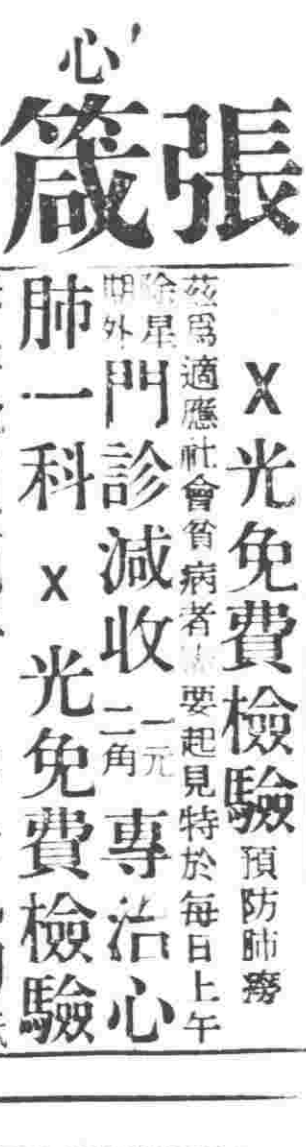 心
張箴
X光免費檢驗預防肺癆
茲爲適應社會貧病者需要起見特於每日上午
除星期外門診減收一元二角專治心
肺一科X光免費檢驗